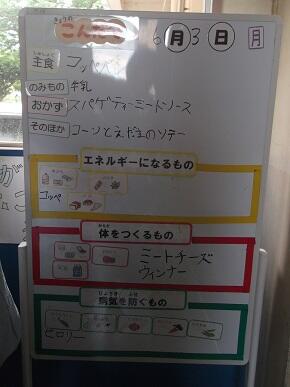 きょうの
こんだて
6月3日 月
しゅしょく
主食 コッペパン
のみもの 牛乳
おかず スパゲティーミートソース
そのほか コーンとえだまめソテー
エネルギーになるもの
コッペ
からだ
体をつくるもの
ミートチーズ
ウィンナー
びょうき ふせ
病気を防ぐもの
ピロリー